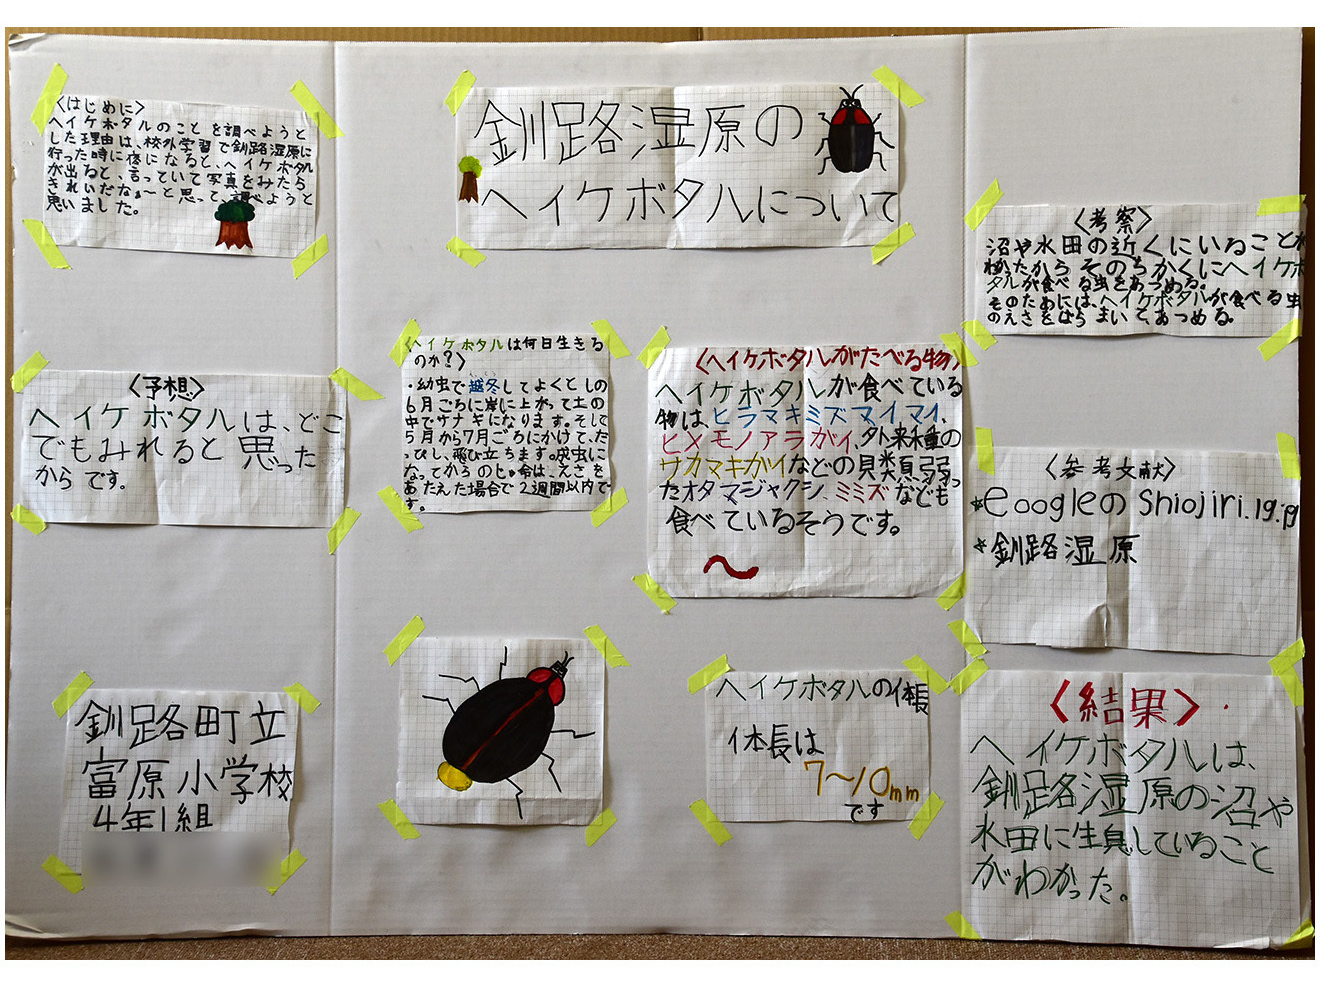 釧路湿原の
ヘイケボタルについて
〈はじめに〉
ヘイケボタルのことを調べようと
した理由は、校外学習で釧路湿原に
行った時に夜になると、ヘイケボタル
が出ると、言っていて写真をみたら、
きれいだなぁ〜と思って、調べようと
思いました。
〈予想〉
ヘイケボタルは、どこ
でもみれると思った
からです。
釧路町立
富原小学校
4年1組
〈ヘイケボタルは何日生きる
のか?〉
・幼虫で越冬してよくとしの
6月ごろに岸に上がって土の
中でサナギになります。そして
5月から7月ごろにかけて、だ
っぴし、飛び立ちます。成虫に
なってからのじゅ命は、えさを
あたえた場合で2週間以内で
す。
〈ヘイケボタルがたべる物〉
ヘイケボタルが食べている
物は、ヒラマキミズマイマイ、
ヒメモノアラガイ、外来種の
サカマキガイなどの貝類、弱っ
たオタマジャクシ、ミミズなども
食べているそうです。
ヘイケボタルの体長
体長は
7〜10mm
です
〈考察〉
沼や水田の近くにいることが
わかったからそのちかくにヘイケボ
タルが食べる虫をあつめる。
そのためには、ヘイケボタルが食べる虫
のえさをばらまいてあつめる。
〈参考文献〉
*eoogleのShiojiri.ig.jp
*釧路湿原
〈結果〉
ヘイケボタルは、
釧路湿原の沼や
水田に生息していること
がわかった。